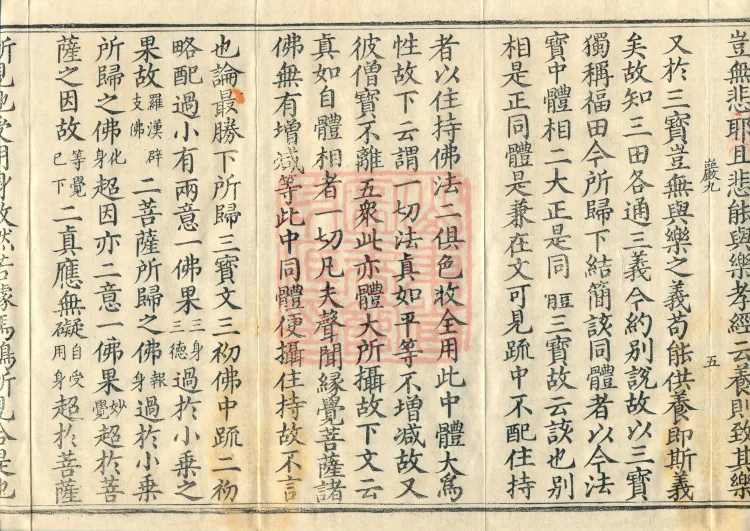 豈無悲耶且悲能與樂孝經云養則致其樂
巖九
五
又於三寶豈無與樂之義苟能供養即斯義
矣故知三田各通三義今約別說故以三寶
獨稱福田今所歸下結簡該同體者以今法
寶中體相二大正是同體三寶故云該也別
相是正同體是兼在文可見䟽中不配住持
者以住持佛法二俱色收全用此中體大為
性故下云謂一切法真如平等不增减故又
彼僧寶不離五衆此亦體大所攝故下文云
真如自體相者一切凡夫聲聞緣覺菩薩諸
佛無有增减等此中同體便攝住持故不言
也論最勝下所歸三寶文三初佛中䟽二初
略配過小有兩意一佛果三身三德過於小乘之
果故羅漢辟支佛二菩薩所歸之佛報身過於小乘
所歸之佛化身超因亦二意一佛果妙覺超於菩
薩之因故等覺已下二真應無礙自受用身超於菩薩